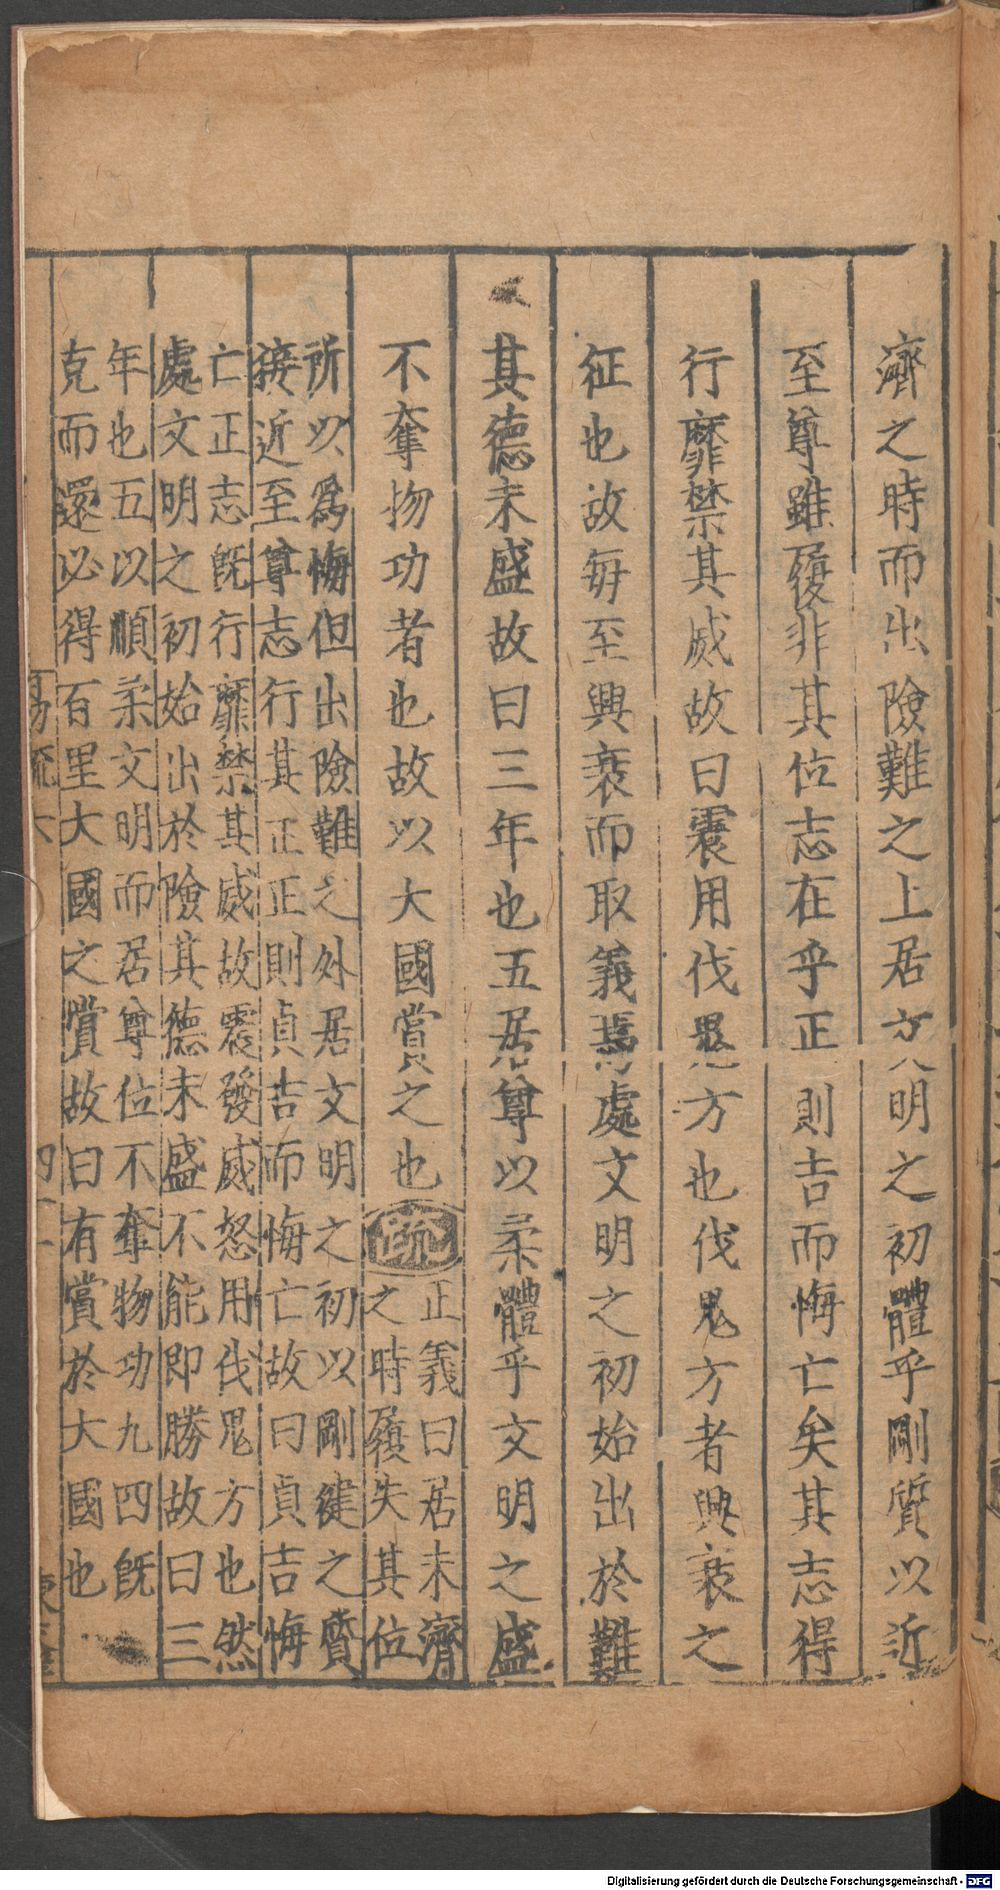 濟之時而出險難之上居文明之初體乎剛質以近
至尊雖履非其位志在乎正則吉而悔亡矣其志得
行靡禁其威故曰震用伐鬼方也伐鬼方者興衰之
征也故每至興衰而取義焉處文明之初始出於難
其德未盛故曰三年也五居尊以柔體乎文明之盛
不奪物功者也故以大國賞之也疏
正義曰居未濟
之時履失其位
所以為悔但出險難之外居文明之初以剛健之質
接近至尊志行其正正則貞吉而悔亡故曰貞吉悔
亡正志既行靡禁其威故震發威怒用伐鬼方也然
處文明之初始出於險其德未盛不能即勝故曰三
年也五以順柔文明而居尊位不奪物功九四既
克而還必得百里大國之賞故曰有賞於大國也
Digitalisierung gefördert durch die Deutsche Forschungsgemeinschaft - DFG